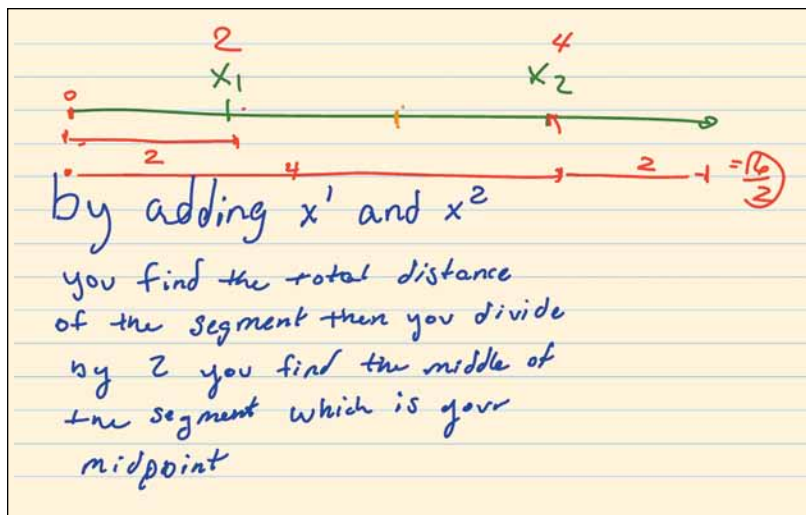 2 4
x₁ x₂
0
2
4 2 = 6/2
by adding x¹ and x²
you find the total distance
of the segment then you divide
by 2 you find the middle of
the segment which is your
midpoint